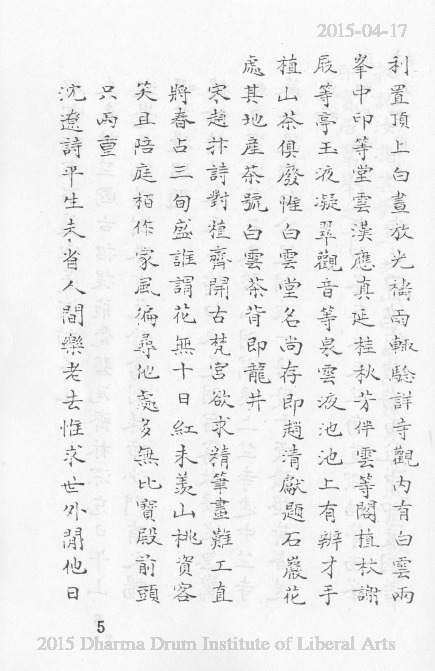 2015-04-17
利置頂上白晝放光禱雨輒驗詳寺觀內有白雲兩
峯中印等堂雲漢應真延桂秋芳伴雲等閣植杖謝
屐等亭玉液凝翠觀音等泉雲液池池上有辨才手
植山茶俱廢惟白雲堂名尚存即趙清獻題石巖花
處其地産茶號白雲茶背即龍井
宋趙抃詩對植齊開古梵宮欲求精筆畫難工直
將春占三旬盛誰謂花無十日紅未羨山桃資客
笑且陪庭栢作家風徧尋他處多無比寶殿前頭
只兩重
沈遼詩平生未省人間樂老去惟求世外閒他日
5
2015 Dharma Drum Institute of Liberal Arts